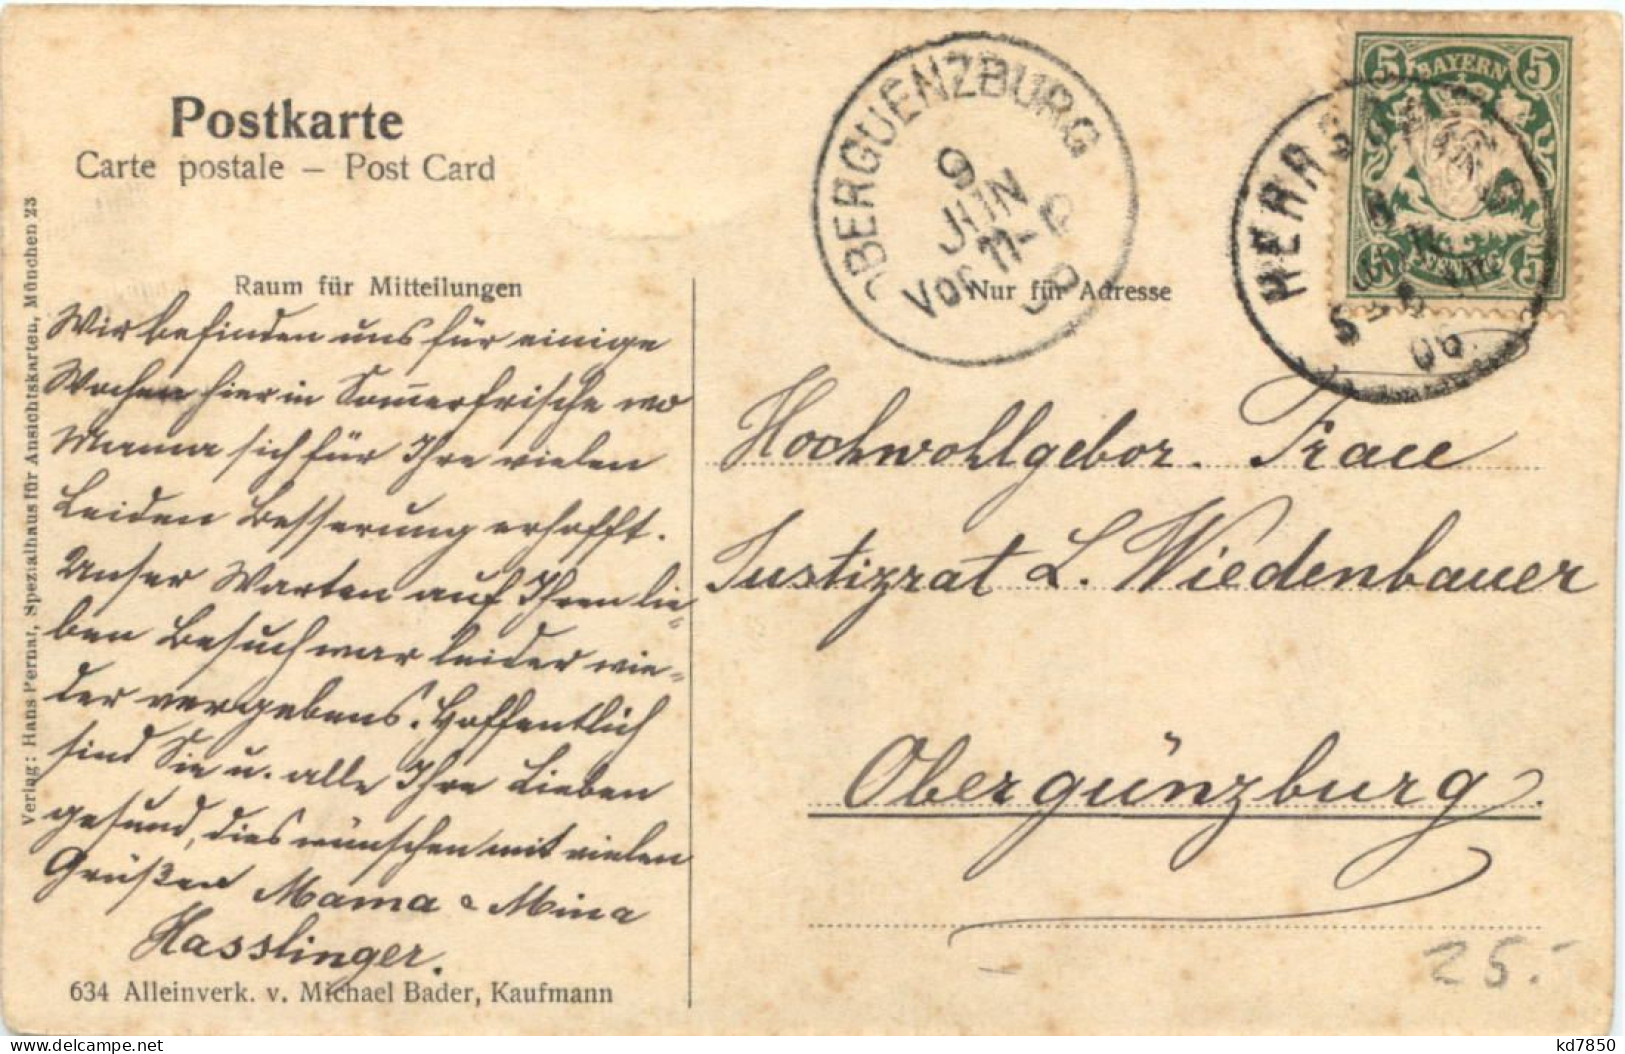 Postkarte
Carte postale – Post Card
Raum für Mitteilungen
Wir befinden uns für einige
Wochen hier in Sommerfrische wo
Mama sich für Ihre vielen
Leiden Besserung erhofft.
Unser Warten auf Ihren lie=
ben Besuch war leider wie=
der vergebens. Hoffentlich
sind Sie u. alle Ihre Lieben
gesund, dies wünschen mit vielen
Grüßen Mama & Mina
Hasslinger.
634 Alleinverk. v. Michael Bader, Kaufmann
Verlag: Hans Pernat, Spezialhaus für Ansichtskarten, München 23
OBERGUENZBURG
9
JUN
Vor. 11-
BAYERN
5 5
5
HERRS
06
Nur für Adresse
Hochwohlgebor. Frau
Justizrat L. Wiedenbauer
Obergünzburg.
25.-
kd7850